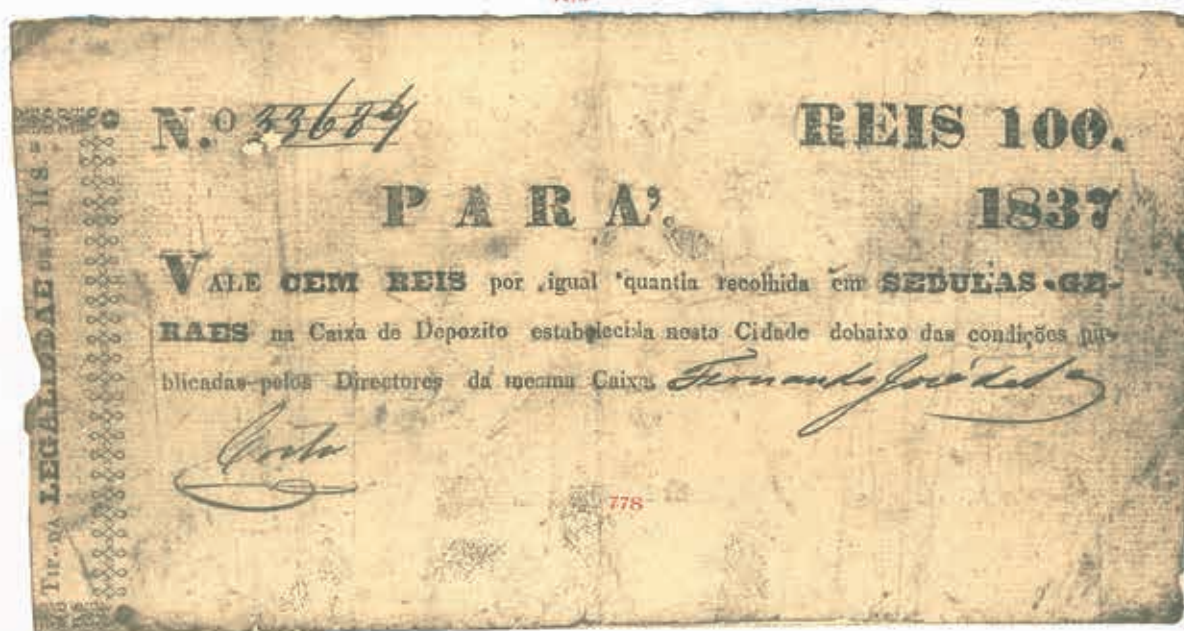 N.º 33684
REIS 100.
PARA'.
1837
VALE CEM REIS por igual quantia recolhida em SEDULAS-GE-
RAES na Caixa de Depozito estabelecida nesta Cidade debaixo das condições pu-
blicadas pelos Directores da mesma Caixa. Fernando José da S.ª
TIP. DA LEGALIDADE DE J. II S.
778